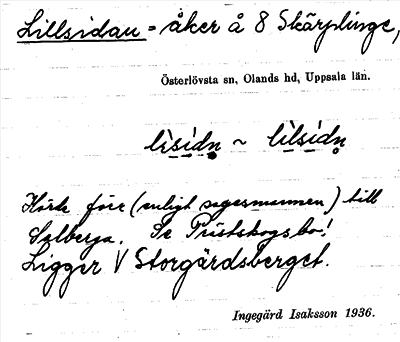 Lillsidan = åker å 8 Skärplinge,
Österlövsta sn, Olands hd, Uppsala län.
lìsidn ~ lìlsidn
Hörde förr (enligt sagesmannen) till
Salberga. Se Pristskogsbo!
Ligger V Storgärdsberget.
Ingegärd Isaksson 1936.